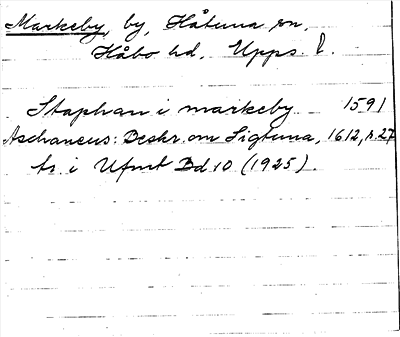 Markeby, by, Håtuna sn,
Håbo hd, Upps. l.
Staphan i markeby 1591
Aschaneus: Beskr. om Sigtuna, 1612, s. 27
tr. i Ufmt Bd 10 (1925).